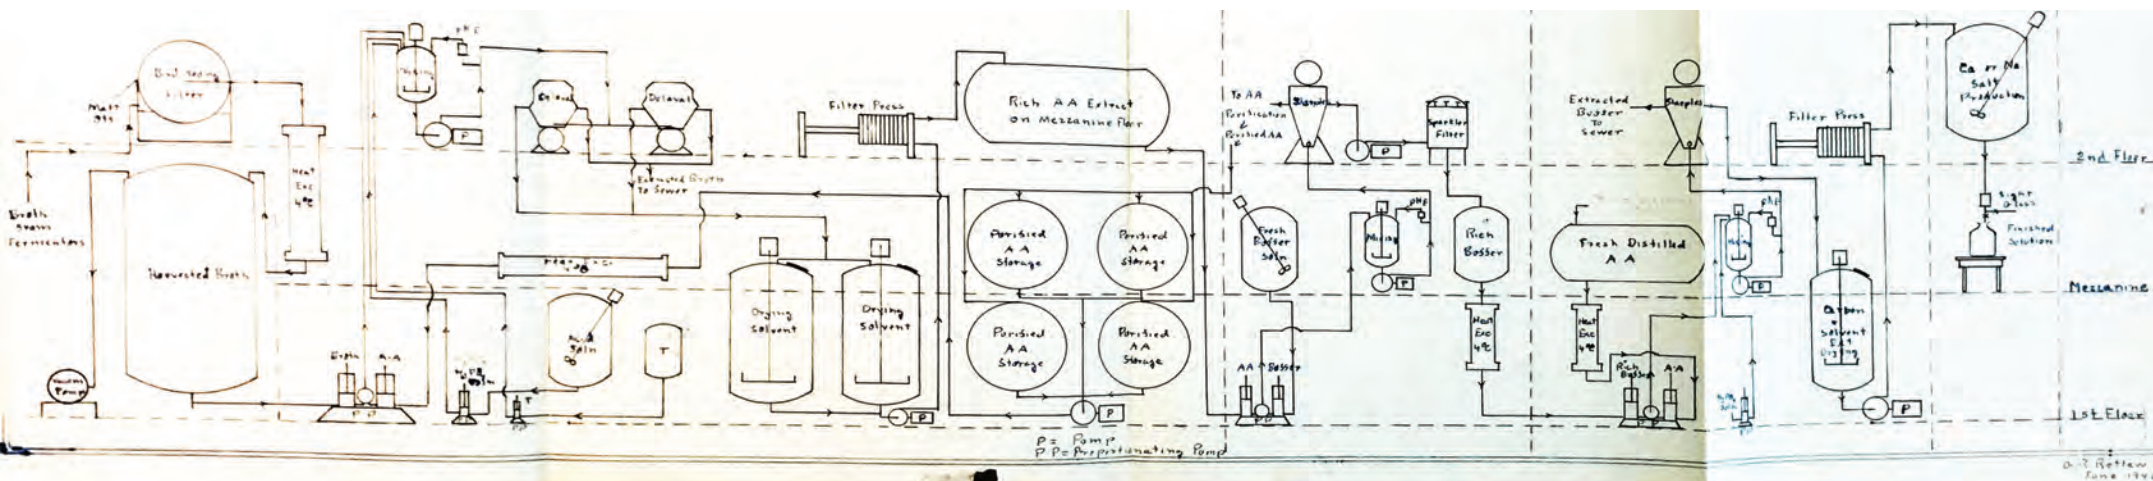 Filter
Heat
Exc
4°C
Broth
from
Fermentors
Harvested Broth
Vacuum
Pump
Mixing
P
Delaval
Extracted Broth
To Sewer
Broth
A-A
PP
T
T
Drying
Solvent
Drying
Solvent
P
Filter Press
Rich AA Extract
on Mezzanine Floor
Purified
AA
Storage
Purified
AA
Storage
Purified
AA
Storage
Purified
AA
Storage
P
P = Pump
P.P = Proportionating Pump
To AA
Purification
Purified AA
P
Sparkler
Filter
Fresh
Buffer
Soln
Mixing
P
Rich
Buffer
Heat
Exc
4°C
AA
Buffer
PP
Extracted
Buffer
To
Sewer
Fresh Distilled
AA
Heat
Exc
4°C
Rich
Buffer
AA
PP
Mixing
P
Filter Press
Carbon
+
Solvent
Drying
P
Ca or Na
Salt
Production
Sight
Glass
Finished
Solution
2nd Floor
Mezzanine
1st Floor
June